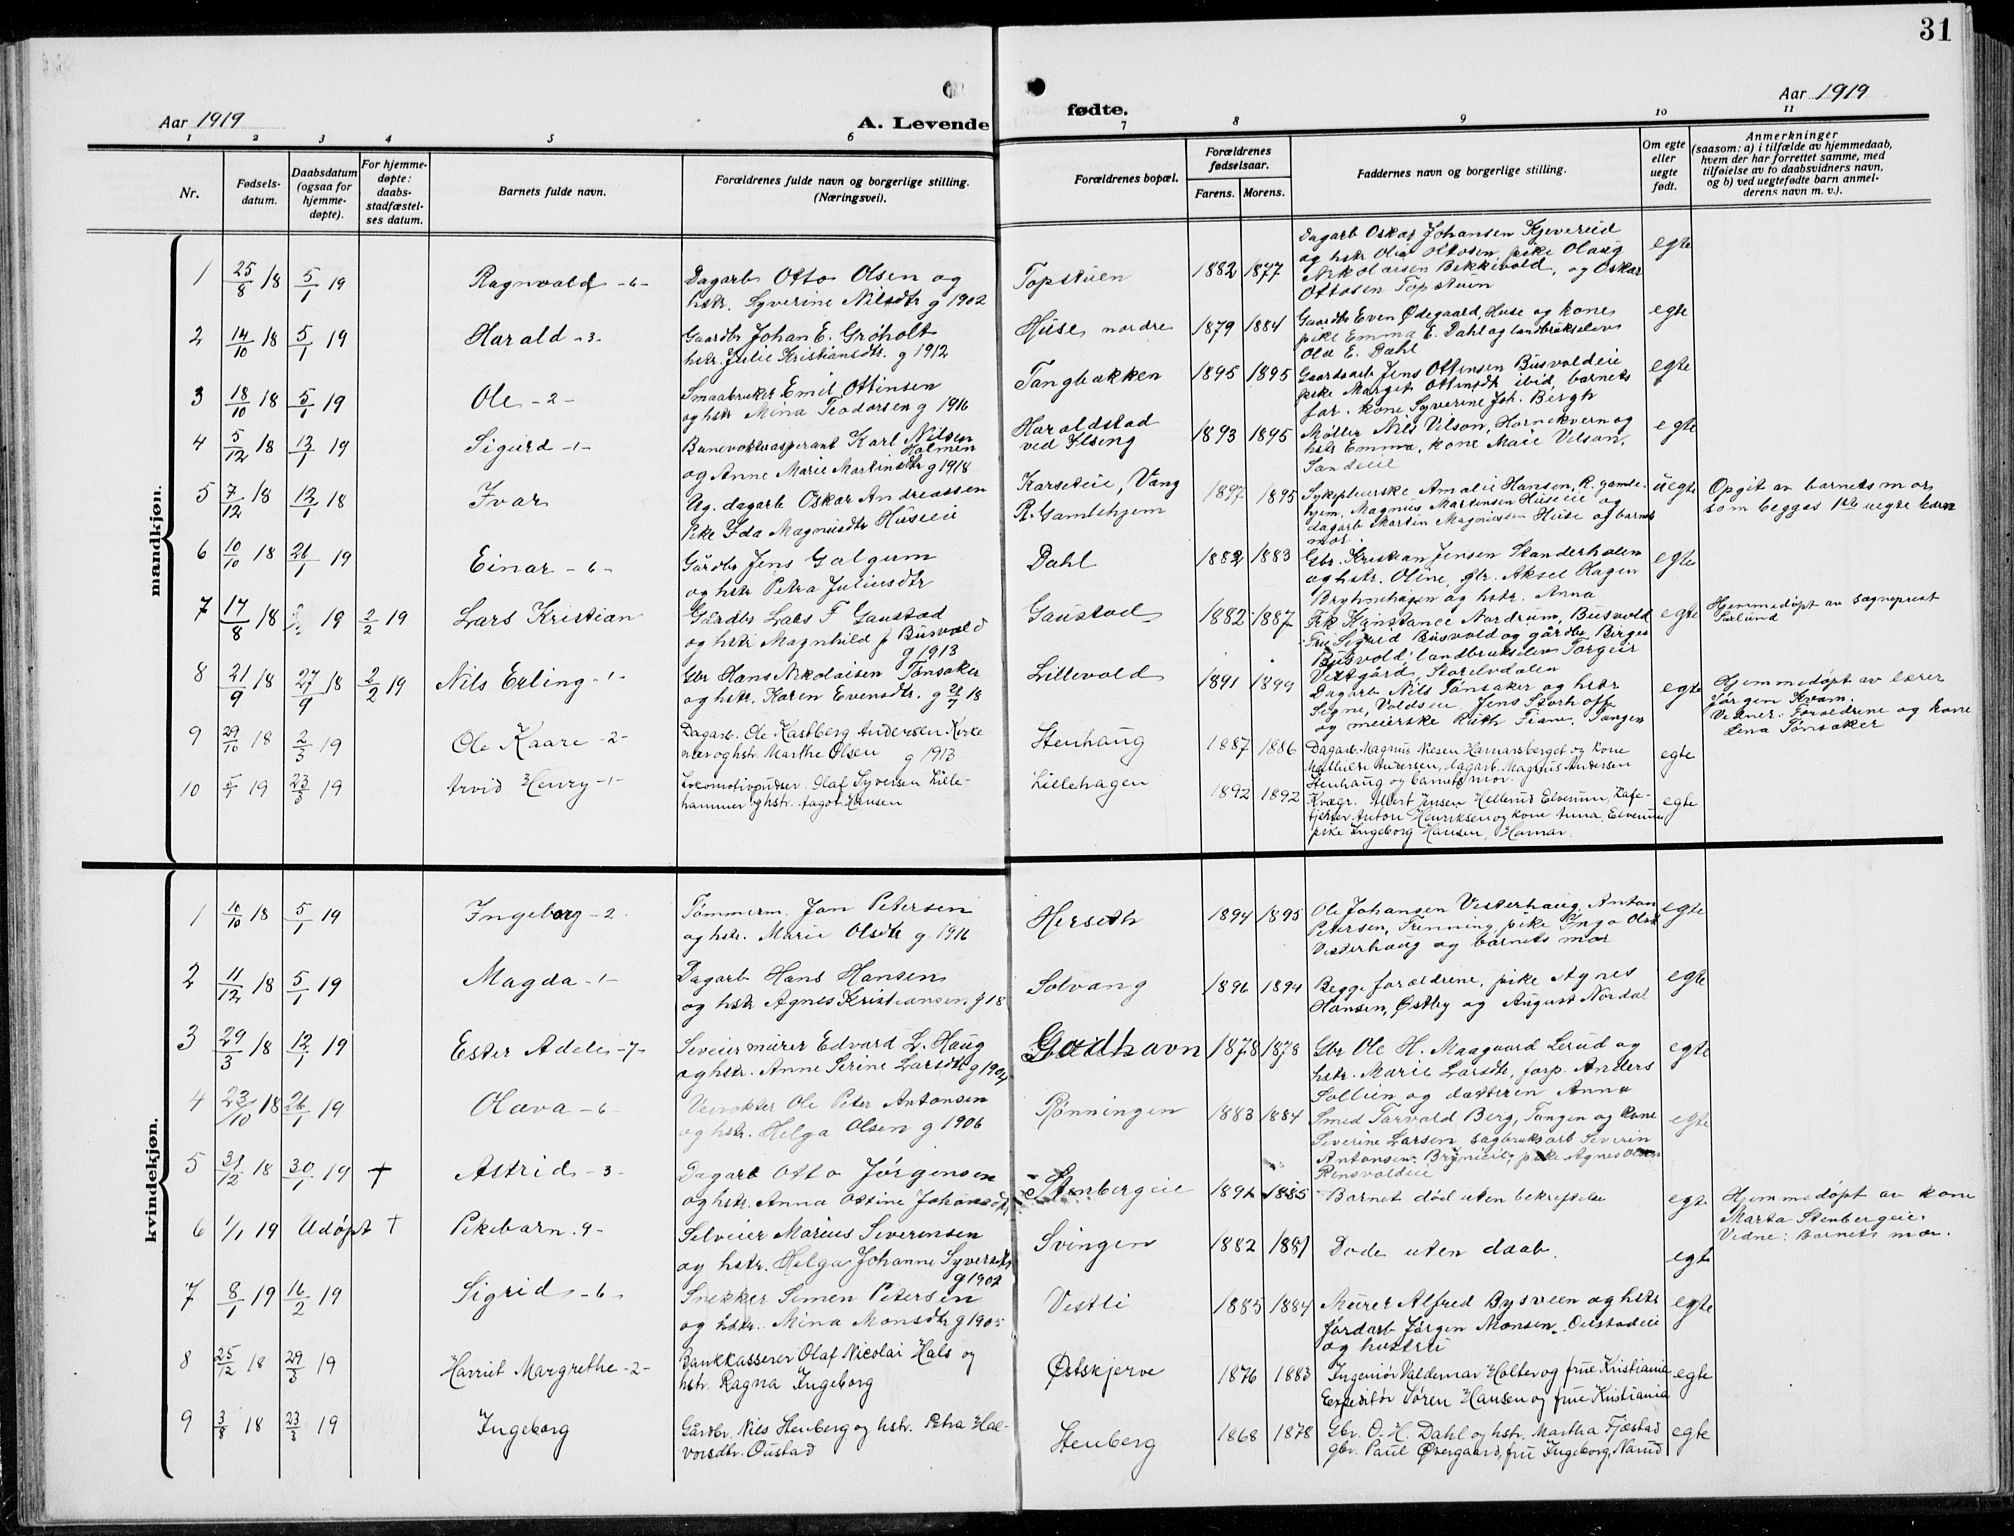 31
Aar 1919
A. Levende
fødte.
Aar 1919
1 2 3 4 5 6 7 8 9 10 11
Nr.
Fødsels-
datum.
Daabsdatum
(ogsaa for
hjemme-
døpte).
For hjemme-
døpte:
daabs-
stadfæstel-
ses datum.
Barnets fulde navn.
Forældrenes fulde navn og borgerlige stilling.
(Næringsvei).
Forældrenes bopæl.
Forældrenes
fødselsaar.
Farens. Morens.
Faddernes navn og borgerlige stilling.
Om egte
eller
uegte
født.
Anmerkninger
(saasom: a) i tilfælde av hjemmedaab,
hvem der har forrettet samme, med
tilføielse av to daabsvidners navn,
og b) ved uegtefødte barn anmel-
derens navn m. v.).
mandkjøn.
1 25/8 18 5/1 19 Ragnvald -6-
Dagarb Otto Olsen og
hstr. Syverine Nilsdtr g 1902
Topstuen 1882 1877
Dagarb Oskar Johansen Kjevereid
og hstr Olia Ottosen, pike Olaug
Nikolaisen Bekkevold, og Oskar
Ottosen Topstuen
egte
2 14/10 18 5/1 19 Harald -3-
Gaardbr Johan E. Grøholt
hstr. Julie Kristiansdtr. g 1912
Huse nordre 1879 1884
Gaardbr Even Ødegaard, Huse og kone
pike Emma E. Dahl og landbrukselev
Olav E. Dahl
egte
3 18/10 18 5/1 19 Ole -2-
Smaabruker Emil Ottinsen
og hstr Mina Teodorsen g 1916
Tangbakken 1895 1895
Gaardsarb Jens Ottinsen Busvoldeie
pike Margit Ottinsdtr ibid, barnets
far. kone Syverine Joh. Bergh
egte
4 5/12 18 12/1 19 Sigurd -1-
Banevokteraspirant Karl Nilsen
Holmen
og Anne Marie Martinsdtr g 1918
Haraldstad
ved Ilseng
1893 1895
Møller Nils Vilson, Hornekvern og
hstr Emma, kone Maie Vilson,
Sandeie
egte
5 7/12 18 12/1 18 Ivar
Ug. dagarb Oskar Andreassen
Pike Ida Magnusdtr Huseeie
Karseteie, Vang
R. Gamlehjem
1897 1895
Sykepleierske Amalie Hansen, R. gamle-
hjem, Magnus Martinsen Huseeie og
dagarb Martin Magnussen Huse og barnets
mor.
uegte
Opgit av barnets mor
som begges 1ste uegte barn
6 10/10 18 26/1 19 Einar -6-
Gårdbr Jens Galgum
og hstr Petra Juliusdtr
Dahl 1882 1883
Gbr. Kristian Jensen Skanderholen
og hstr. Oline, gbr. Aksel Hagen
Brynhehagen og hstr. Anna
egte
7 17/8 18 19 2/2 19 Lars Kristian
Gårdbr Lars F Gaustad
og hstr Magnhild J Busvold
g 1913
Gaustad 1882 1887
Frk Konstance Nordrum, Busvold
Frue Sigrid Busvold og gårdbr. Birger
Busvold, landbrukselev Torgeir
Vestgård, Storelvdalen
egte
Hjemmedøpt av sogneprest
8 21/9 18 27/9 18 2/2 19 Nils Erling -1-
Gbr Hans Nikolaisen Tønsaker
og hstr. Karen Evensdtr. g 21/7 18
Lillevold 1891 1899
Dagarb Nils Tønsaker og hstr
Signe, Voldseie, Jens Storhoff
og meierske Ruth Fram, Tangen
egte
Hjemmedøpt av lærer
Jørgen Kvam.
Vidner: Foreldrene og kone
Lina Tønsaker
9 29/10 18 2/3 19 Ole Kaare -2-
Dagarb. Ole Kastberg Andersen Kirke
nær og hstr. Marthe Olsen g 1913
Stenhaug 1887 1886
Dagarb. Magnus Nilsen Hamarsberget og kone
Mathilde Andersen, dagarb. Magnus Andersen
Stenhaug og barnets mor.
egte
10 5/1 19 23/3 19 Arvid Henry -1-
Lokomotivpudser Olaf Syversen Lille-
hammer og hstr. Hansen
Lillehagen 1892 1892
Kvægr. Albert Jensen Hellerud Elverum, Kafe-
Anton Henriksen og kone Anna, Elverum
pike Ingeborg Hansen, Hamar.
egte
kvindekjøn.
1 10/10 18 5/1 19 Ingeborg -2-
Tømmerm. Jon Petersen
og hstr. Marie Olsdtr g. 1916
Herseth 1894 1895
Ole Johansen Vesterhaug, Anton
Petersen, Frenning, pike Inga Olsdtr
Vesterhaug og barnets mor
egte
2 11/12 18 5/1 19 Magda -1-
Dagarb Hans Hansen
og hstr Agnes Kristiansen, g 18
Solvang 1896 1894
Begge forældrene, pike Agnes
Hansen, Østby og August Nordal
egte
3 29/3 18 12/1 19 Ester Adele -7-
murer Edvard L. Haug
og hstr. Anne Serine Larsdtr g 1904
Godhavn 1878 1878
Gbr Ole H. Maagaard Lerud og
hstr. Marie Larsdtr, forp. Anders
Sollien og datteren Anna
egte
4 23/10 18 26/1 19 Olava -6-
Veivokter Ole Peter Antonsen
og hstr. Helga Olsen g 1906
Rønningen 1883 1884
Smed Torvald Berg, Tangen og kone
Severine Larsen, sagbruksarb Severin
Antonsen Brynieie, pike Agnes Olsen
Rensvoldeie
egte
5 31/12 18 30/1 19 + Astrid -3-
Dagarb Otto Jørgensen
og hstr. Anna Ottine Johansdtr
Stenbergeie 1891 1885
Barnet død uten bekræftelse
egte
Hjemmedøpt av kone
Marta Stenbergeie.
Vidne: Barnets mor.
6 1/1 19 Udøpt + Pikebarn -9-
Selveier Marius Severinsen
og hstr. Helga Johanne Syversdtr
g 1902
Svingen 1882 1881
Døde uten daab.
egte
7 8/1 19 16/2 19 Sigrid -6-
Snekker Simen Petersen
og hstr. Mina Monsdtr g 1905
Vestli 1885 1884
Murer Alfred Bysveen og hstr
Jordarb Jørgen Monsen, Oustadeie
og hustru
egte
8 25/12 18 29/3 19 Harriet Margrethe -2-
Bankkasserer Olaf Nicolai Hals og
hstr. Ragna Ingeborg
Østskjerve 1876 1883
Ingeniør Valdemar Holter og frue Kristiania
Expeditør Søren Hansen og frue Kristiania
egte
9 3/8 18 23/3 19 Ingeborg
Gårdbr. Nils Stenberg og hstr. Petra Hal-
vorsdtr. Oustad
Stenberg 1868 1878
Gbr. O. H. Dahl og hstr. Martha Fjæstad
gbr. Paul Øvergaard, frue Ingeborg Narud
egte